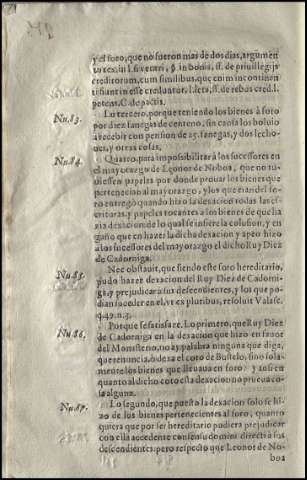 y el foro, que no fueron mas de dos dias, argumen
to tex. in l. si ventri, §. in bonis, ff. de priuilegijs
creditorum, cum similibus, que enim incontinen
ti fiunt in esse creduntur. l. lecta, ff. de rebus cred. l.
petens, C. de pactis.
Nu. 83. Lo tercero, porque teniendo los bienes à foro
por diez fanegas de centeno, sin causa los boluio
a recebir con pension de 25. fanegas, y dos lecho-
nes, y otras cosas.
Nu. 84. Quarto, para impossibilitar à los sucessores en
el mayorazgo de Leonor de Noboa, que no tu-
uiessen papeles por donde prouar los bienes que
pertenecian al mayorazgo, y los que eran del fo-
ro entregò quando hizo la dexacion todas las es-
crituras, y papeles tocantes a los bienes de que ha
zia dexacion de lo qual se infiere la colusion, y en
gaño que en hazer la dicha dexacion y apeo hizo
a los sucessores del mayorazgo el dicho Ruy Diez
de Cadorniga.
Nu. 85. Nec obstauit, que siendo este foro hereditario,
pudo hazer dexacion del Ruy Diez de Cadorni-
ga, y prejudicar a sus descendientes, y los que po-
dian suceder en el, vt ex pluribus, resoluit Valasc.
q. 49. n. 3.
Nu. 86. Porque se satisfaze. Lo primero, que Ruy Diez
de Cadorniga en la dexacion que hizo en fauor
del Monasterio, no ay palabra ninguna que diga,
que renuncia, ò dexa el coto de Bustelo, sino sola-
mente los bienes que lleuaua en foro: y assi en
quanto al dicho coto esta dexacion no prueua co-
sa alguna.
Nu. 87. Lo segundo, que puesto la dexacion solo se hi-
zo de los bienes pertenecientes al foro, quanto
quiera que por ser hereditario pudiera prejudicar
con ella accedente consensu domini directi a sus
descendientes: pero respecto que Leonor de No-
boa